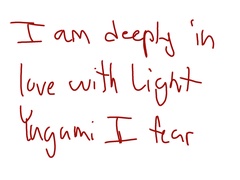 I am deeply in
love with Light
Yagami I fear